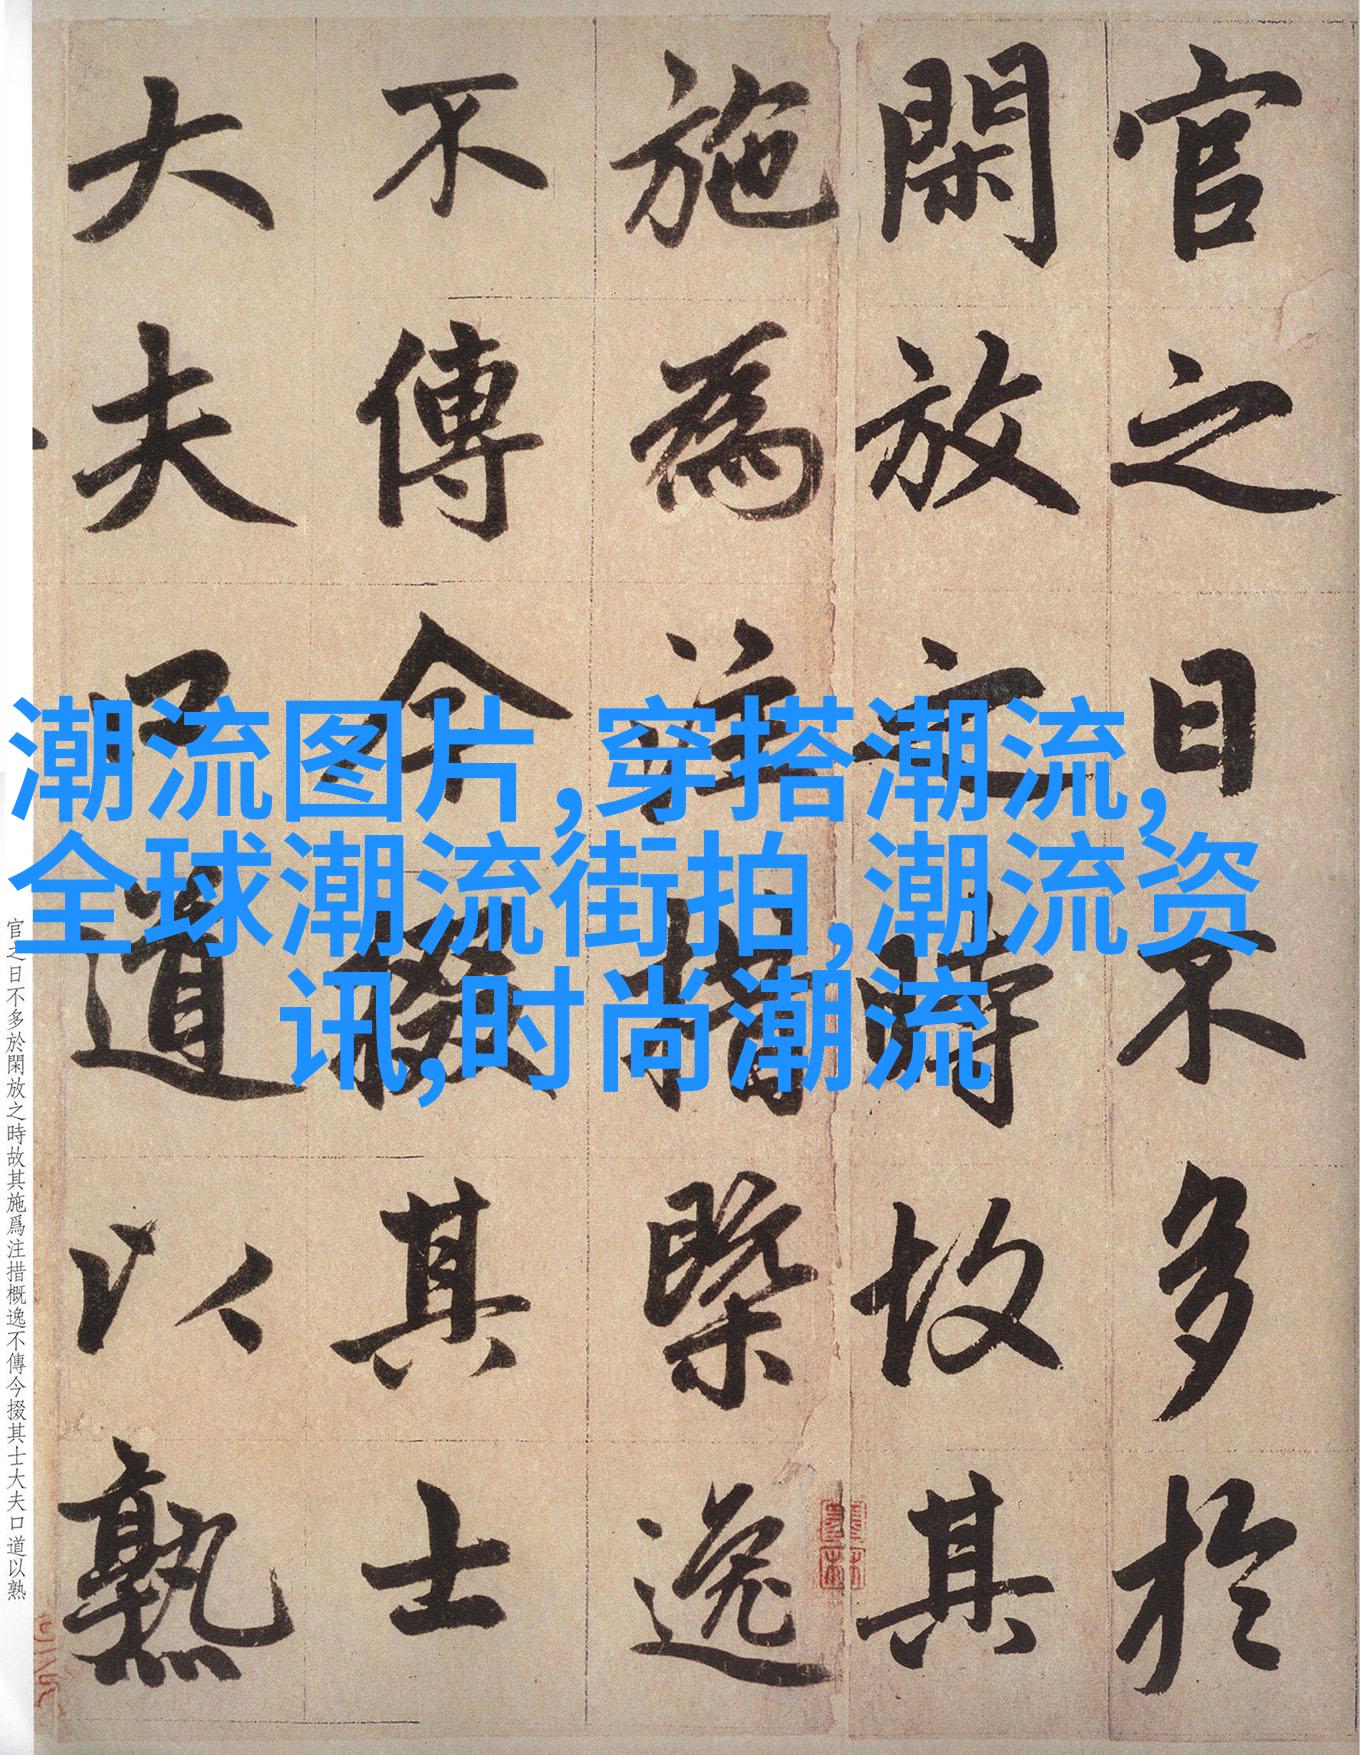 官之日不多於
閑放之時故其
施為注措槩逸
不傳今掇其士
大夫口道以熟
潮流图片,穿搭潮流,
全球潮流街拍,潮流资
讯,时尚潮流
官之日不多於閑放之時故其施爲注措概逸不傳今掇其士大夫口道以熟